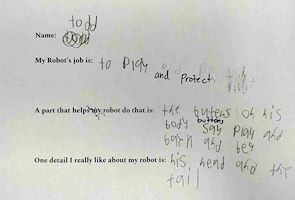 todd
Name: todd
My Robot's job is: to play and protect
A part that helps my robot do that is: the butens on his
body buttons say play and
bark and beg
One detail I really like about my robot is: his head and the
tail